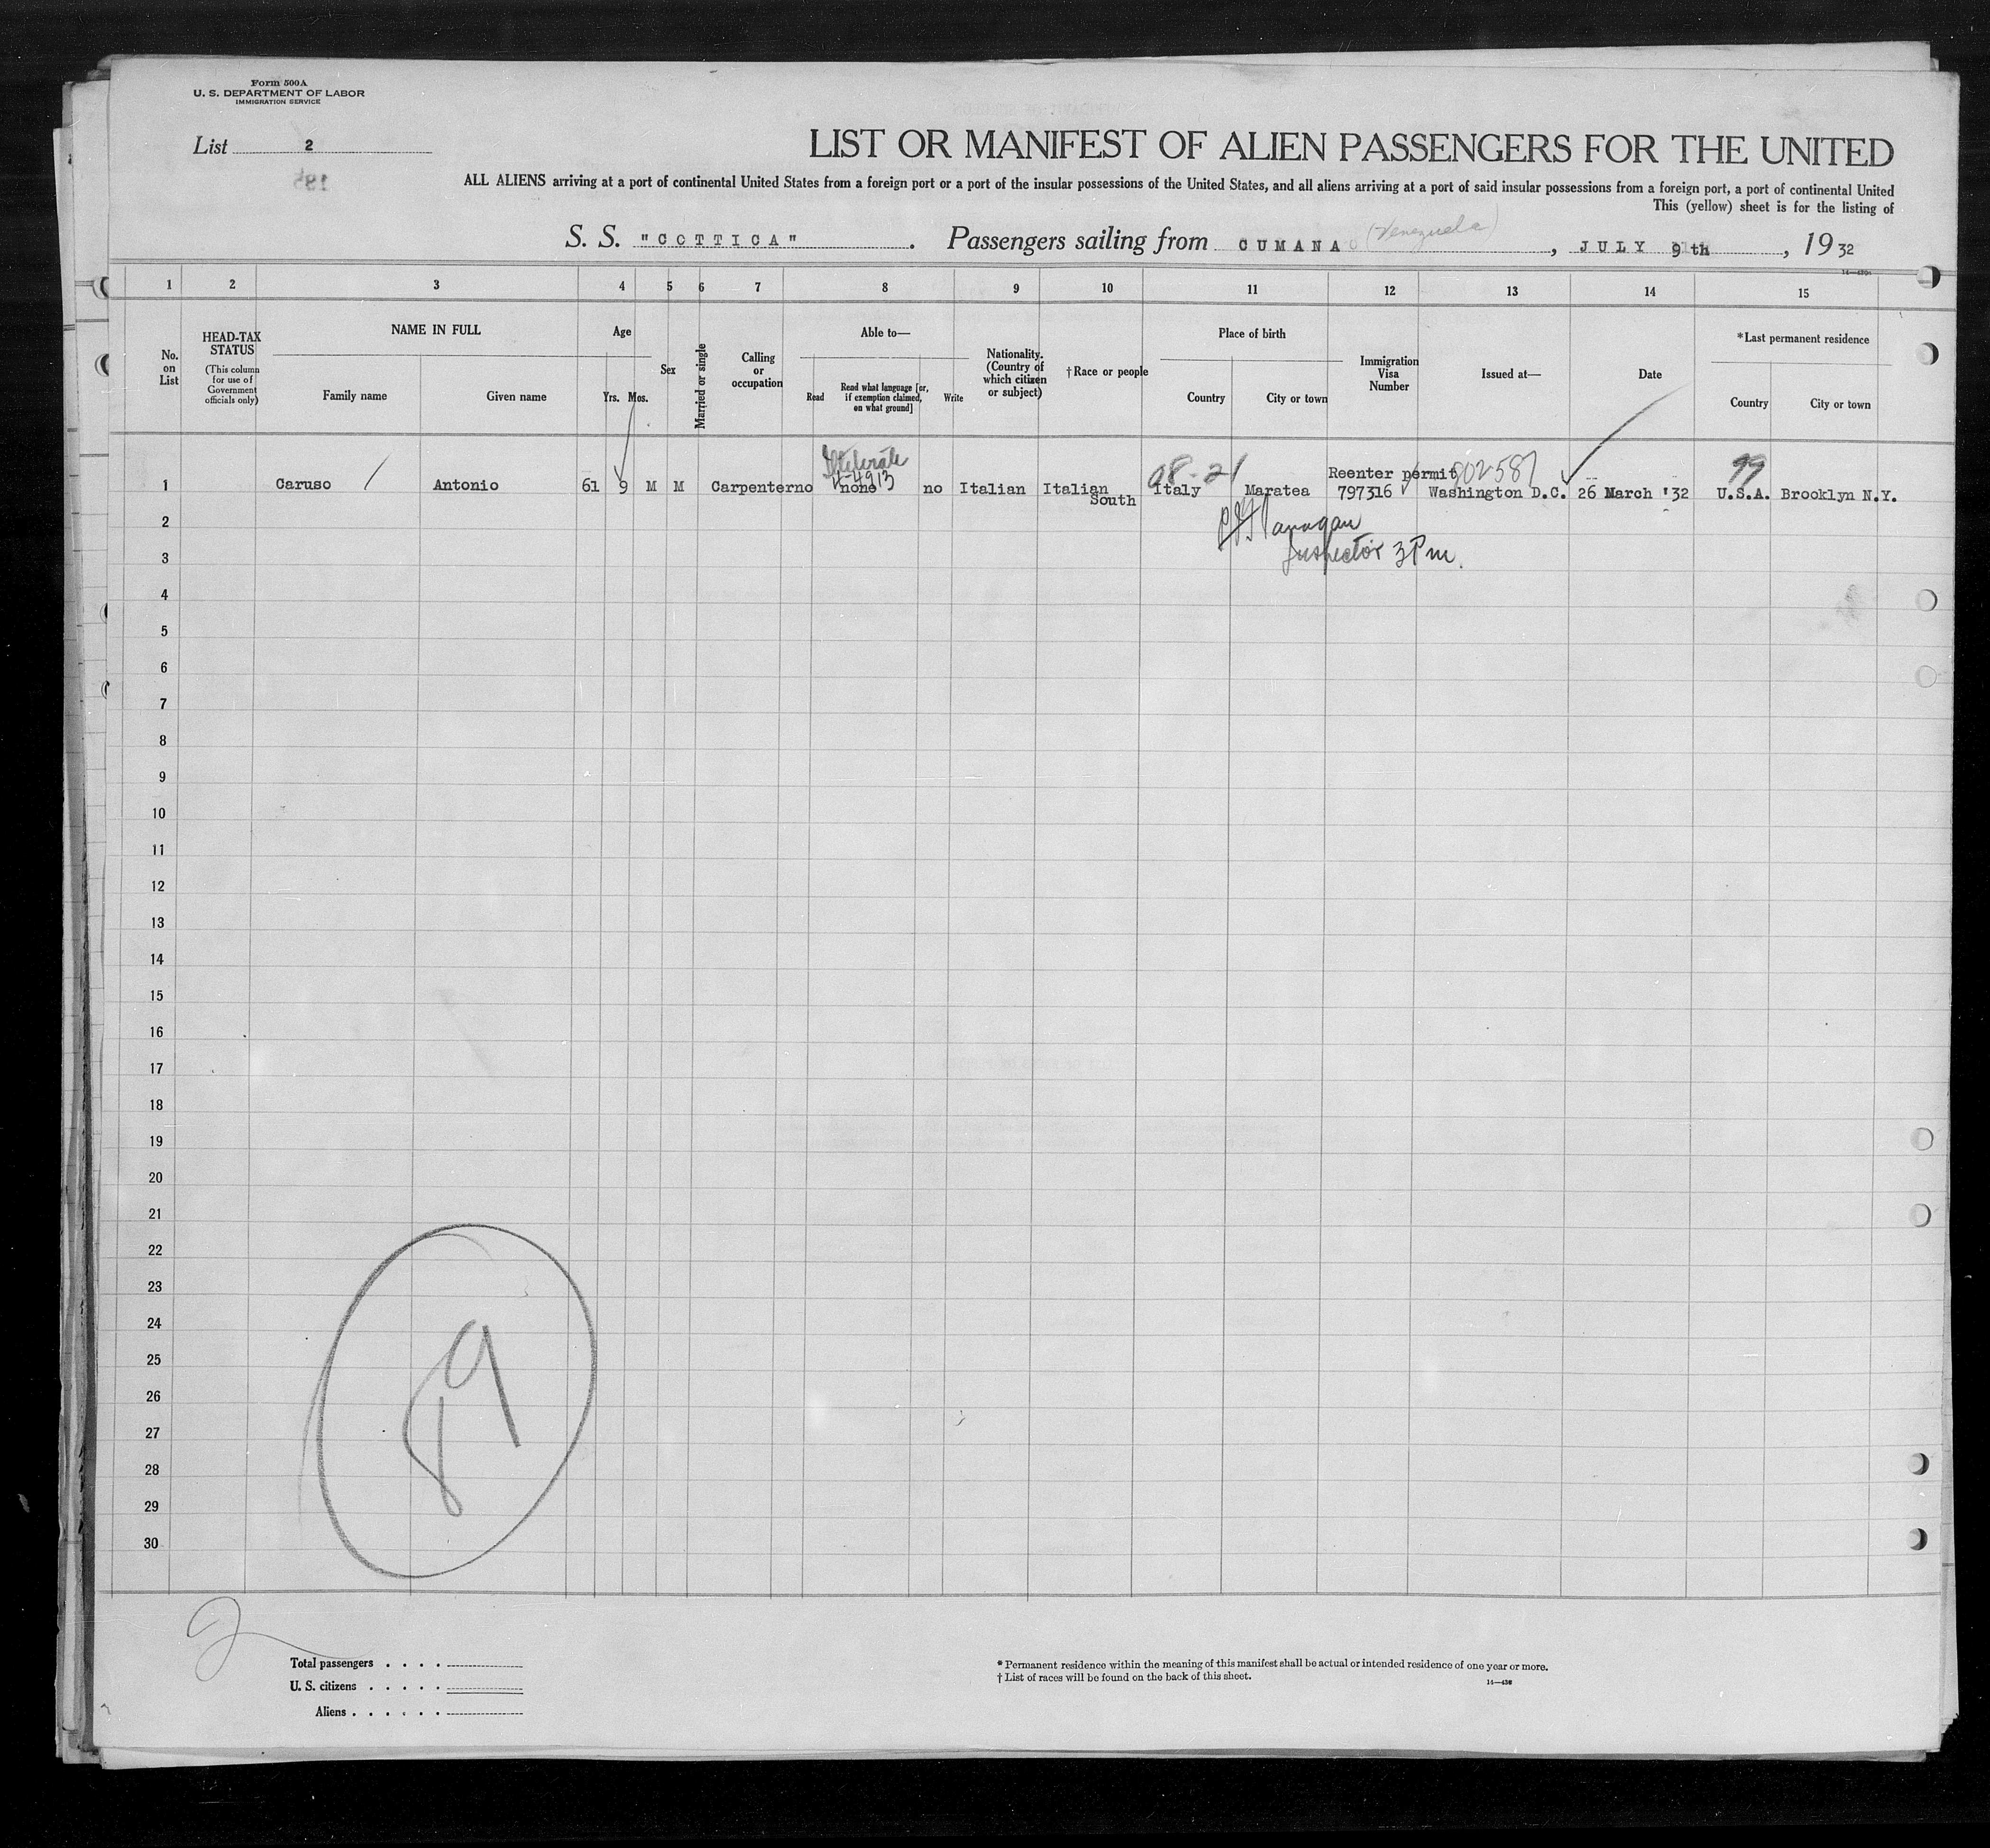 Form 500A
U. S. DEPARTMENT OF LABOR
IMMIGRATION SERVICE
List 2
LIST OR MANIFEST OF ALIEN PASSENGERS FOR THE UNITED
ALL ALIENS arriving at a port of continental United States from a foreign port or a port of the insular possessions of the United States, and all aliens arriving at a port of said insular possessions from a foreign port, a port of continental United
This (yellow) sheet is for the listing of
S. S. "COTTICA". Passengers sailing from CUMANA (Venezuela), JULY 9th, 19 32
1 2 3 4 5 6 7 8 9 10 11 12 13 14 15
No. on List
HEAD-TAX STATUS
(This column for use of Government officials only)
NAME IN FULL
Family name Given name
Age
Yrs. Mos.
Sex
Married or single
Calling or occupation
Able to—
Read Read what language [or, if exemption claimed, on what ground] Write
Nationality. (Country of which citizen or subject)
†Race or people
Place of birth
Country City or town
Immigration Visa Number
Issued at—
Date
*Last permanent residence
Country City or town
Illiterate 08-21 Reenter permit 902587 99
1 Caruso Antonio 61 9 M M Carpenter no none no Italian Italian South Italy Maratea 797316 Washington D.C. 26 March '32 U.S.A. Brooklyn N.Y.
2
Inspector 3 Pm.
3
4
5
6
7
8
9
10
11
12
13
14
15
16
17
18
19
20
21
22
23
24
25
26
27
28
29
30
89
2
Total passengers
U. S. citizens
Aliens
* Permanent residence within the meaning of this manifest shall be actual or intended residence of one year or more.
† List of races will be found on the back of this sheet.